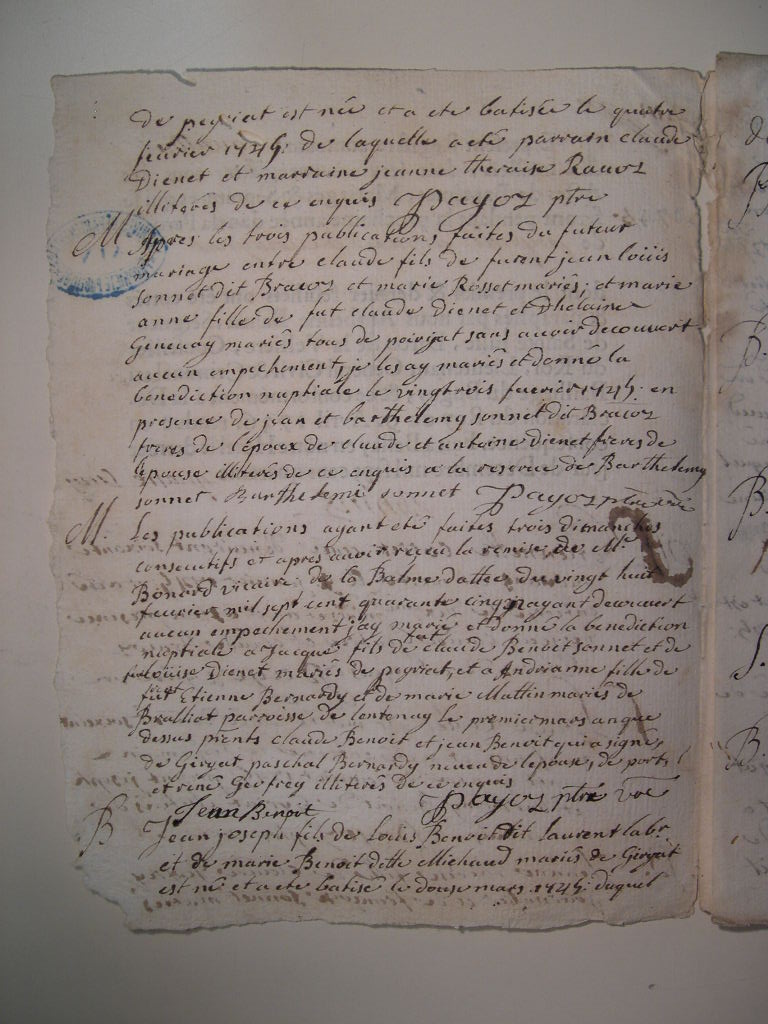 de peyriat est née et a ete batisée le quatre
fevrier 1745. de laquelle a eté parrain claude
Dienet et marraine jeanne theraise Ravoz
illiterés de ce enquis Payoz ptre
M Apres les trois publications faites du futeur
mariage entre claude fils de furent jean loüiis
sonnet dit Bracoz et marie Rosset mariés; et marie
anne fille de fut claude Dienet et Dhelaine
Genevay mariés tous de peiriat sans avoir decouvert
aucun empechement, je les ay mariés et donné la
benediction nuptiale le vingtrois fevrier 1745. en
presence de jean et barthelemy sonnet dit Bracoz
freres de l'epoux de claude et antoine Dienet freres de
l'epouse illiterés de ce enquis a la reserve de Barthelemy
sonnet. Barthelemi sonnet Payoz ptre
M. Les publications ayant eté faites trois dimanches
consecutifs et apres avoir receu la remise de Mr.
Bonard vicaire de la Balme dattée du vingt huit
fevrier mil sept cent quarante cinq n'ayant decouvert
aucun empechement j'ay marié et donné la benediction
nuptiale a Jacque fils de fut claude Benoit sonnet et de
Louise Dienet mariés de peyriat, et a Andrianne fille de
fut Etienne Bernardy et de marie Mattin mariés de
Bralliat parroisse de lentenay le premier mars an que
dessus pnts claude Benoit et jean Benoit qui a signé,
de Giryat paschal Bernardy neveu de lepouse, de port,
et rené Geofrey illiterés de ce enquis
Jean Benoit Payoz ptre vre
B Jean joseph fils de Louis Benoit dit laurent labr.
et de marie Benoit ditte Michaud mariés de Giryat
est né et a ete batisé le douse mars 1745. duquel